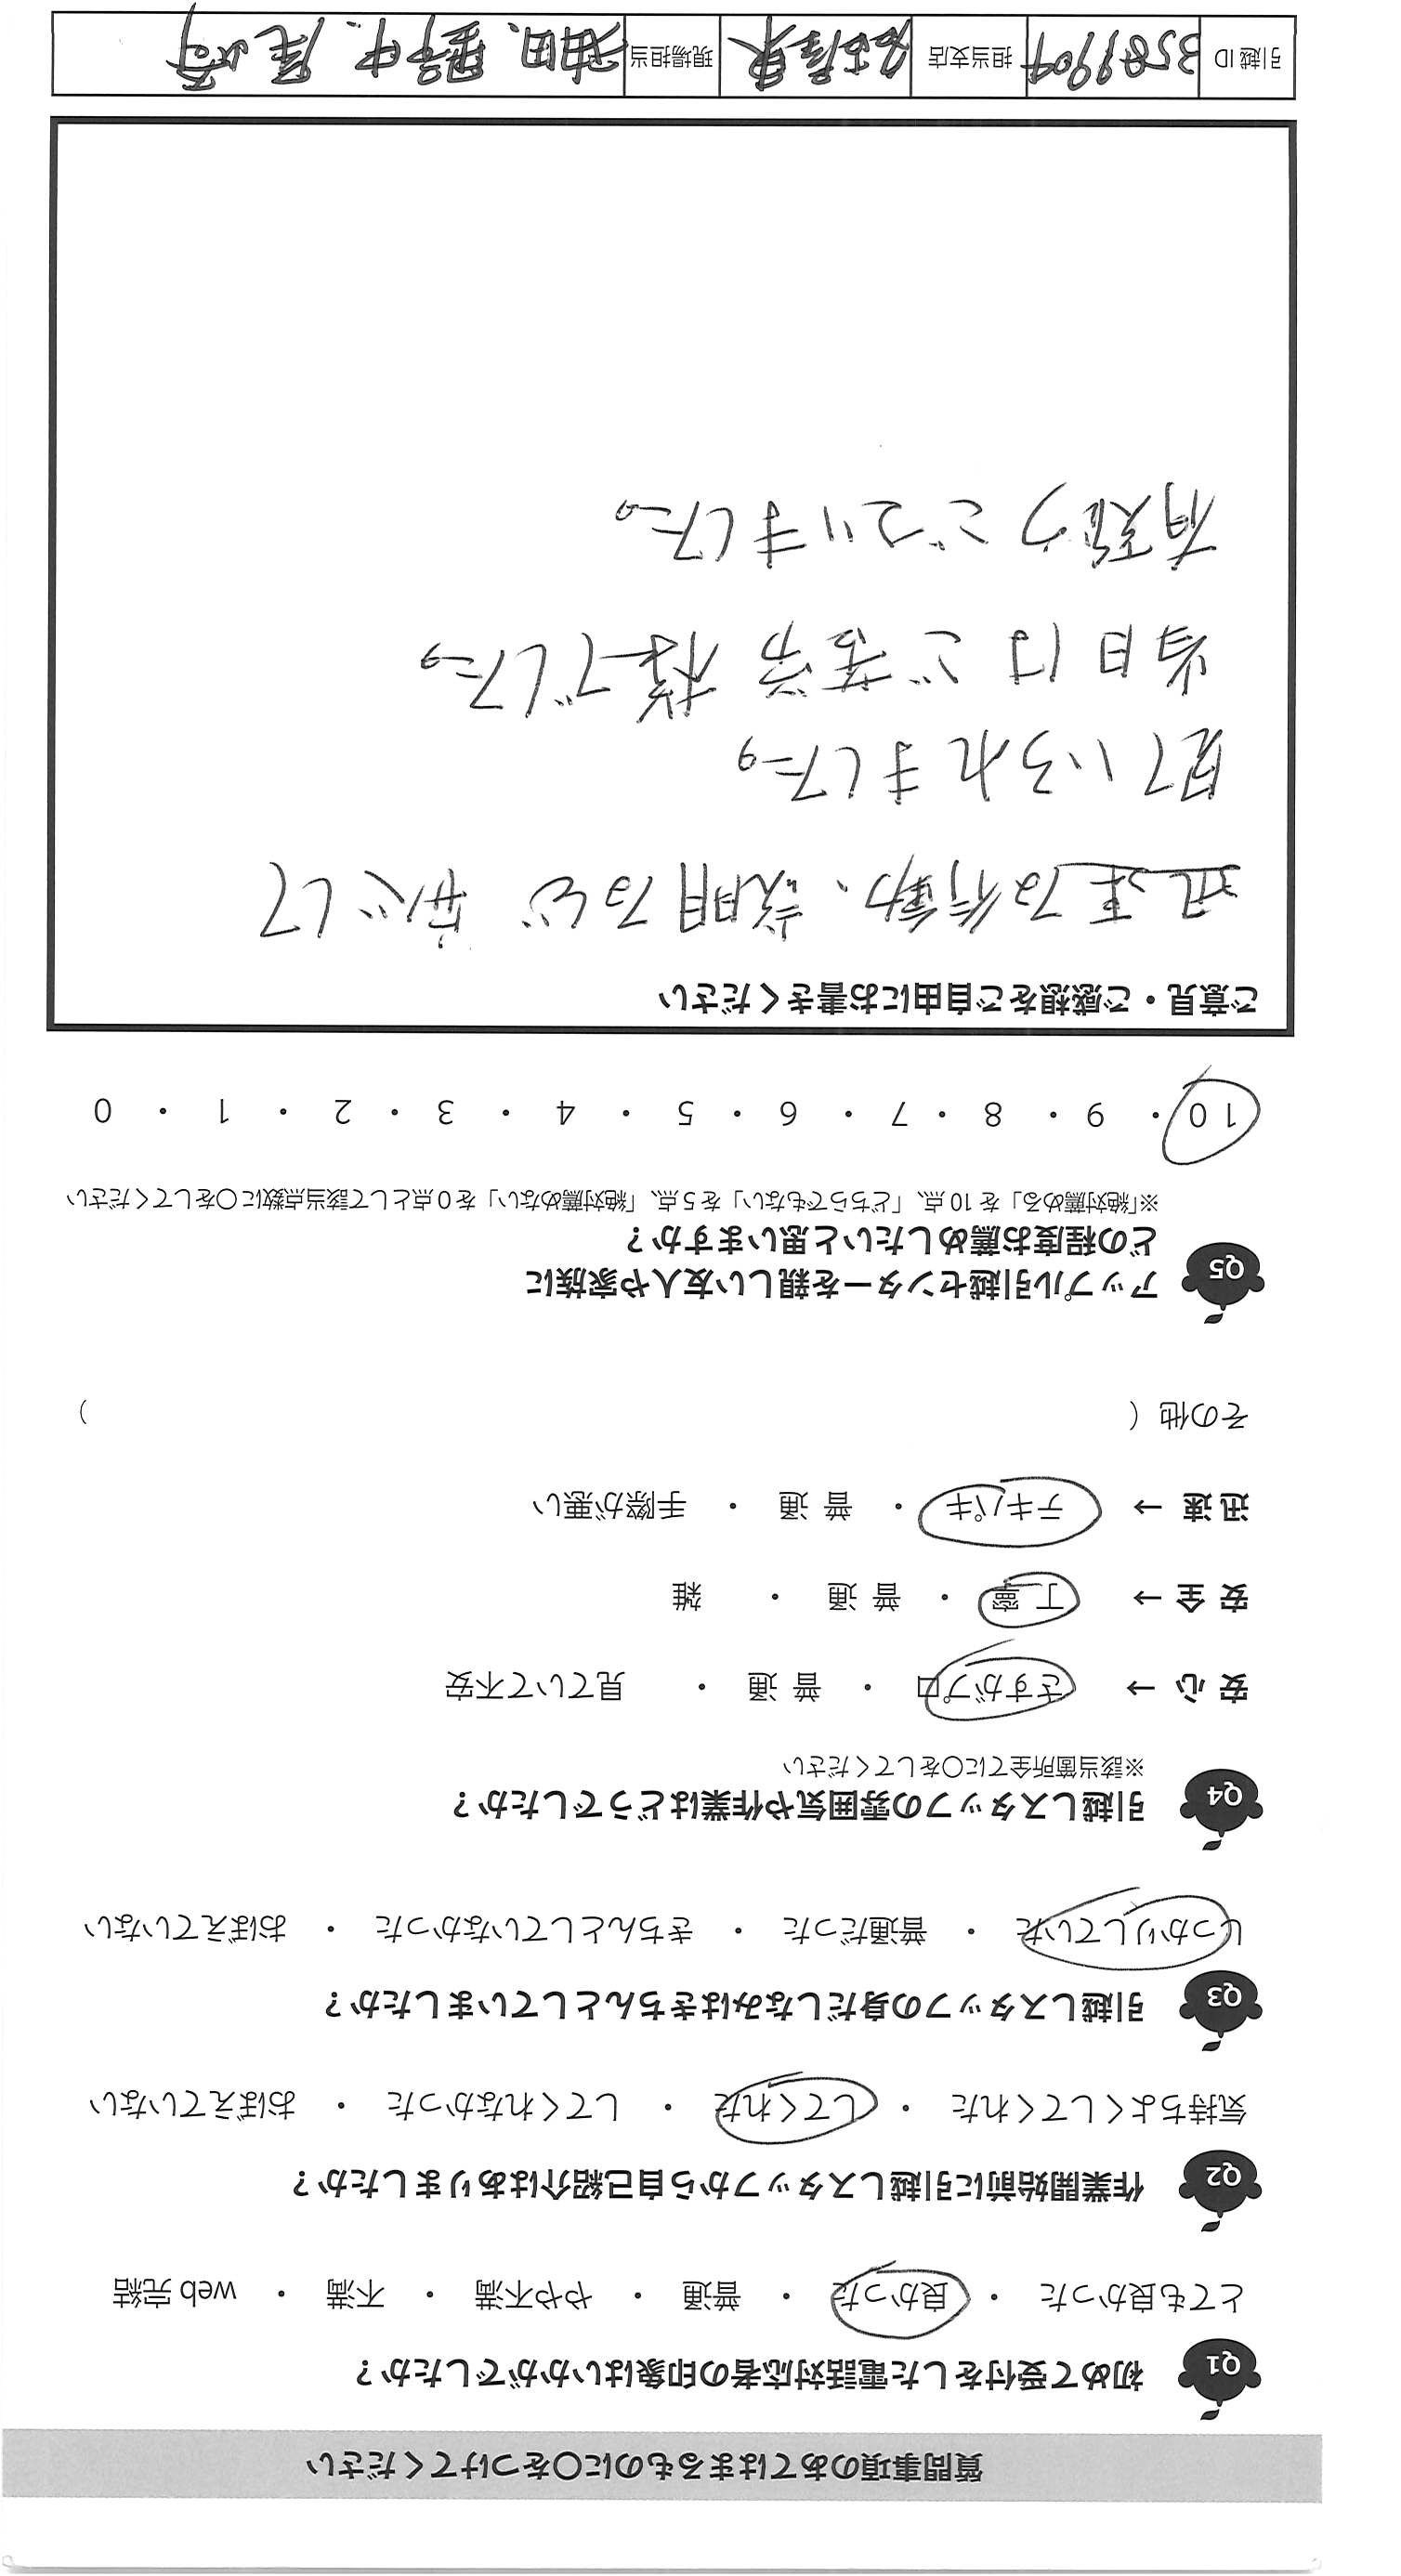 質問事項のあてはまるものに〇をつけてください
Q1 初めて受付をした電話対応者の印象はいかがでしたか?
とても良かった ・ 良かった ・ 普通 ・ やや不満 ・ 不満 ・ web 完結
Q2 作業開始前に引越しスタッフから自己紹介はありましたか?
気持ちよくしてくれた ・ してくれた ・ してくれなかった ・ おぼえていない
Q3 引越しスタッフの身だしなみはきちんとしていましたか?
しっかりしていた ・ 普通だった ・ きちんとしていなかった ・ おぼえていない
Q4 引越しスタッフの雰囲気や作業はどうでしたか?
※該当箇所全てに〇をしてください
安 心 → さすがプロ ・ 普 通 ・ 見ていて不安
安 全 → 丁 寧 ・ 普 通 ・ 雑
迅 速 → テキパキ ・ 普 通 ・ 手際が悪い
その他 ( )
Q5 アップル引越センターを親しい友人や家族に
どの程度お薦めしたいと思いますか?
※「絶対薦める」を 10 点、「どちらでもない」を 5 点、「絶対薦めない」を 0 点として該当点数に〇をしてください
10 ・ 9 ・ 8 ・ 7 ・ 6 ・ 5 ・ 4 ・ 3 ・ 2 ・ 1 ・ 0
ご意見・ご感想をご自由にお書きください
迅速な行動、説明など 安心して
見ていられました。
当日はご苦労様でした。
有難うございました。
引越 ID 3589904 担当支店 名古屋東 現場担当 池田、野中、尾崎